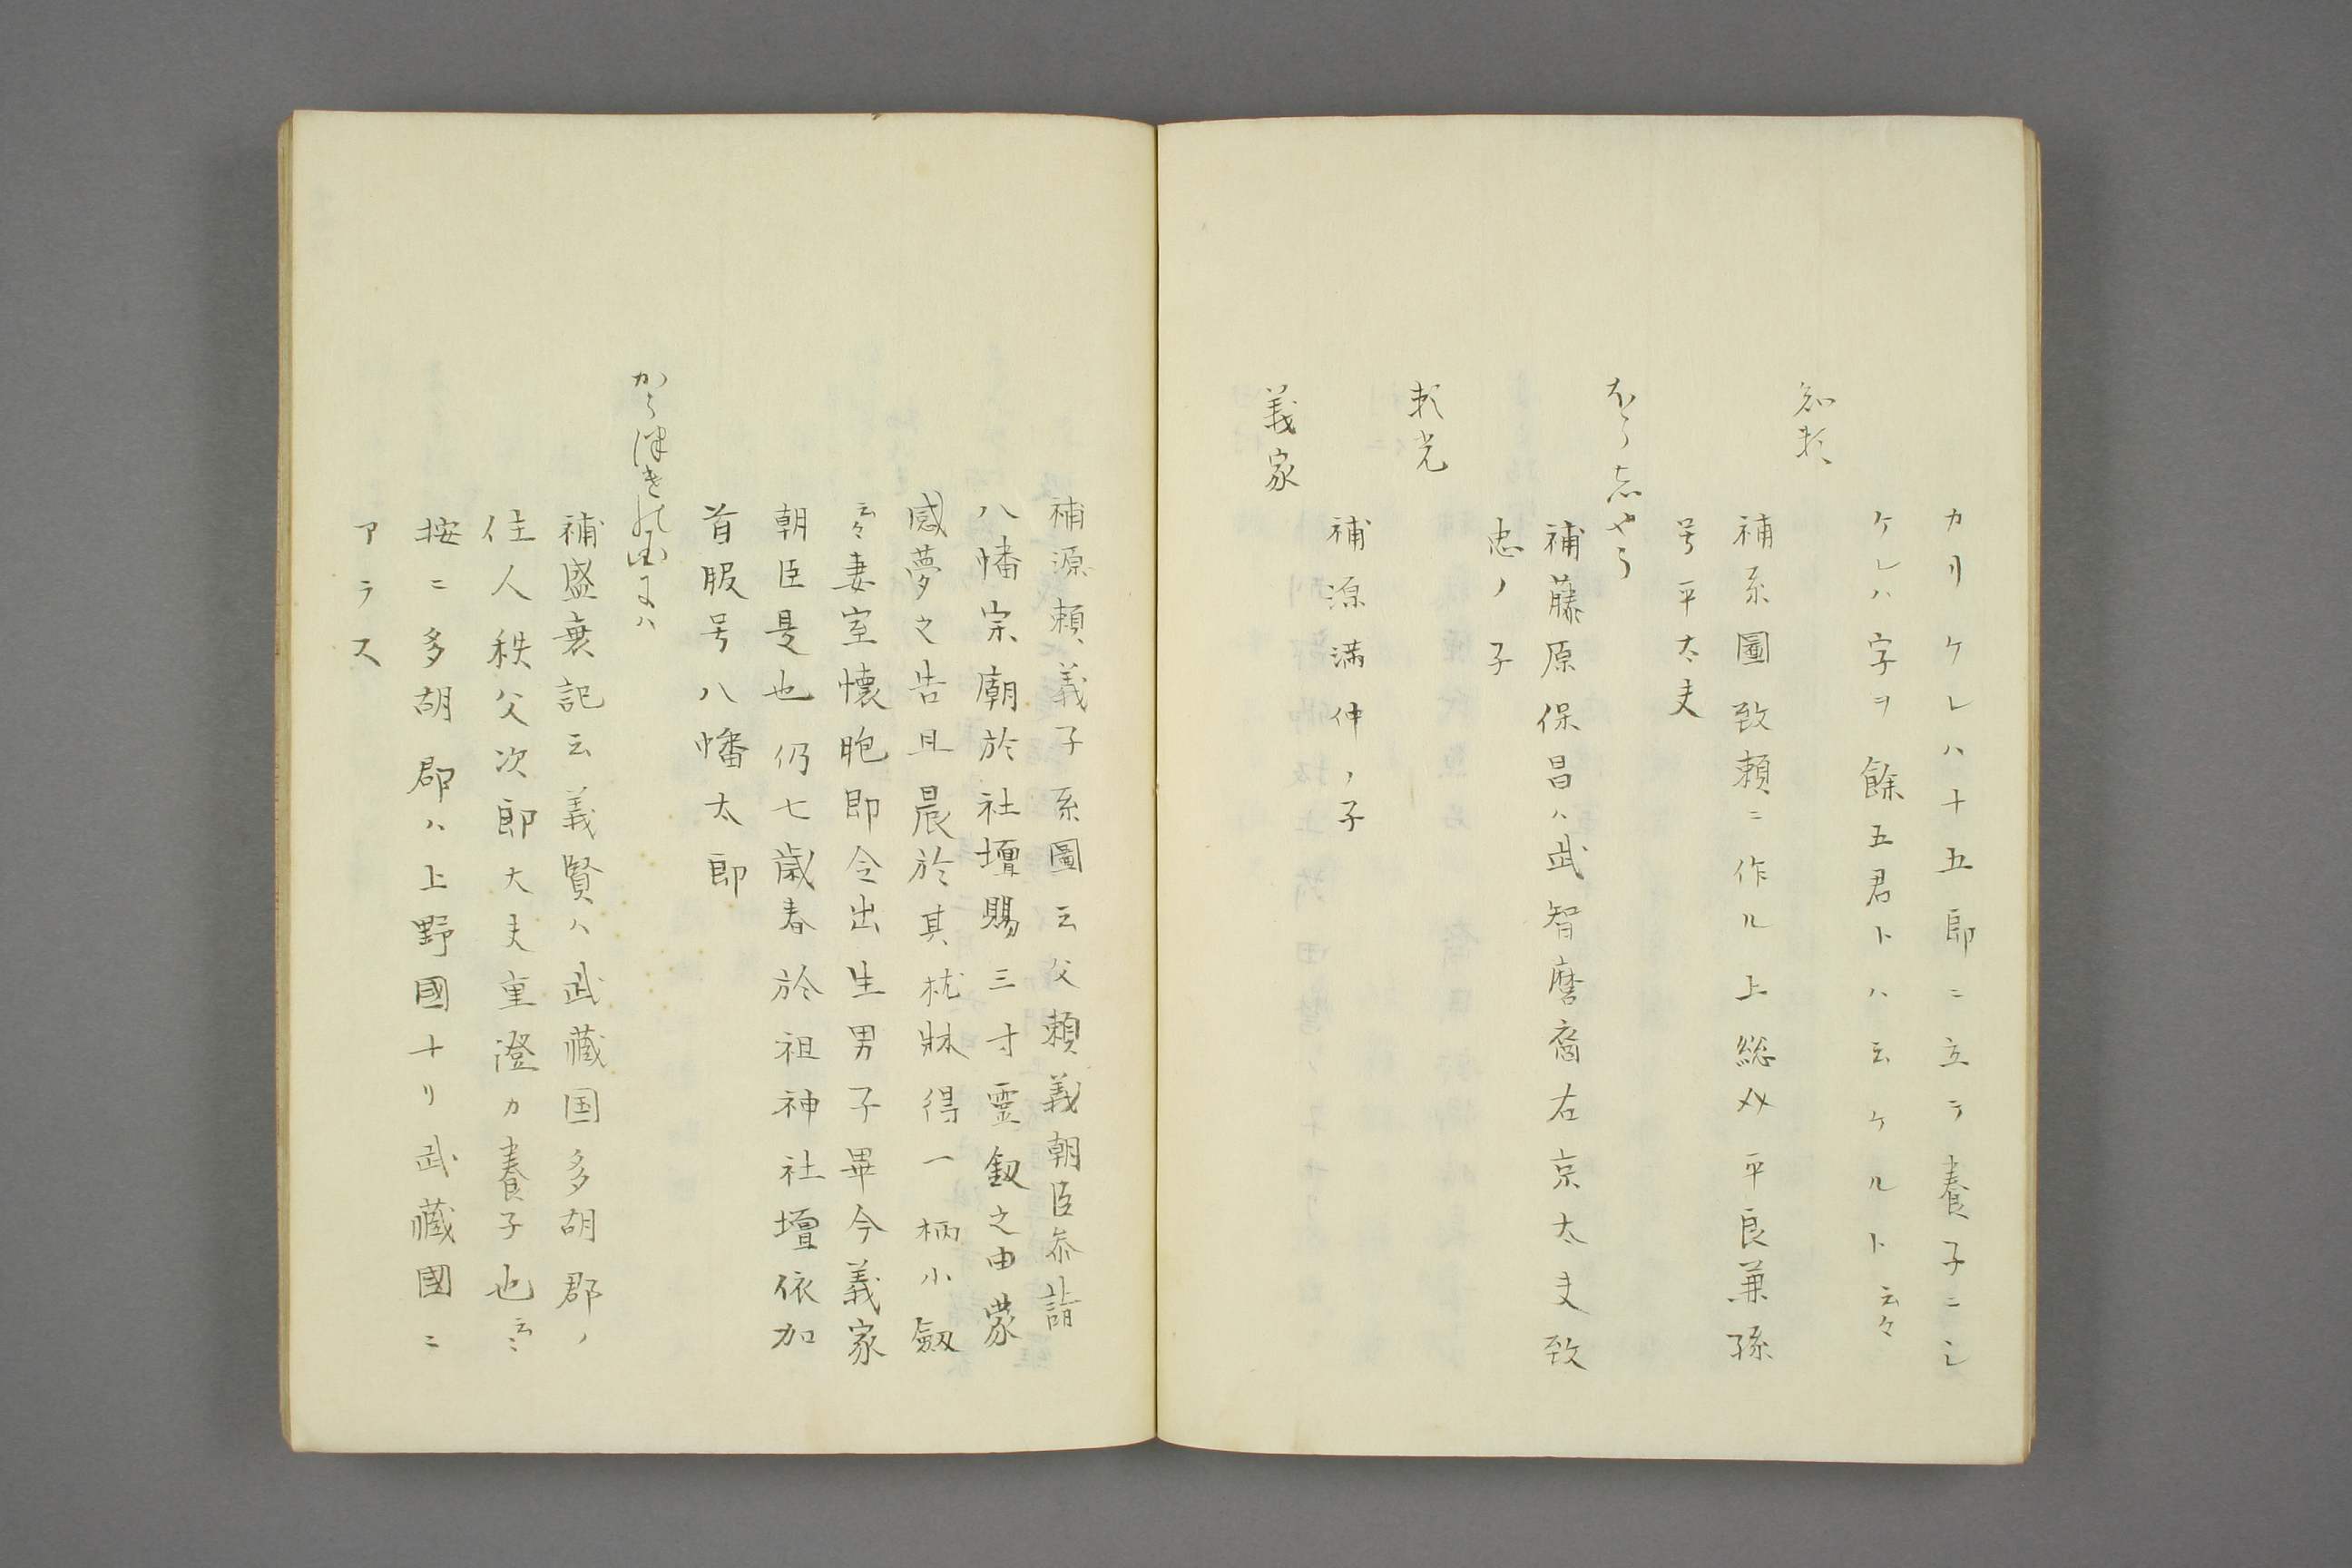 カリケレハ十五郎ニ立テ養子ニシ
ケレハ字ヲ餘五君トハ云ケルト云々
致頼
補系圖致頼ニ作ル上総介平良兼孫
号平太夫
ほうしやう
補藤原保昌ハ武智麿裔右京太夫致
忠ノ子
頼光
補源満仲ノ子
義家
補源頼義子系圖云父頼義朝臣参詣
八幡宗廟於社壇賜三寸霊釼之由蒙
感夢之告且晨於其枕牀得一柄小劔
云々妻室懐胞即令出生男子畢今義家
朝臣是也仍七歳春於祖神社壇依加
首服号八幡太郎
補盛衰記云義賢ハ武藏国多胡郡ノ
住人秩父次郎大夫重澄カ養子也云々
按ニ多胡郡ハ上野國ナリ武藏國ニ
アラス